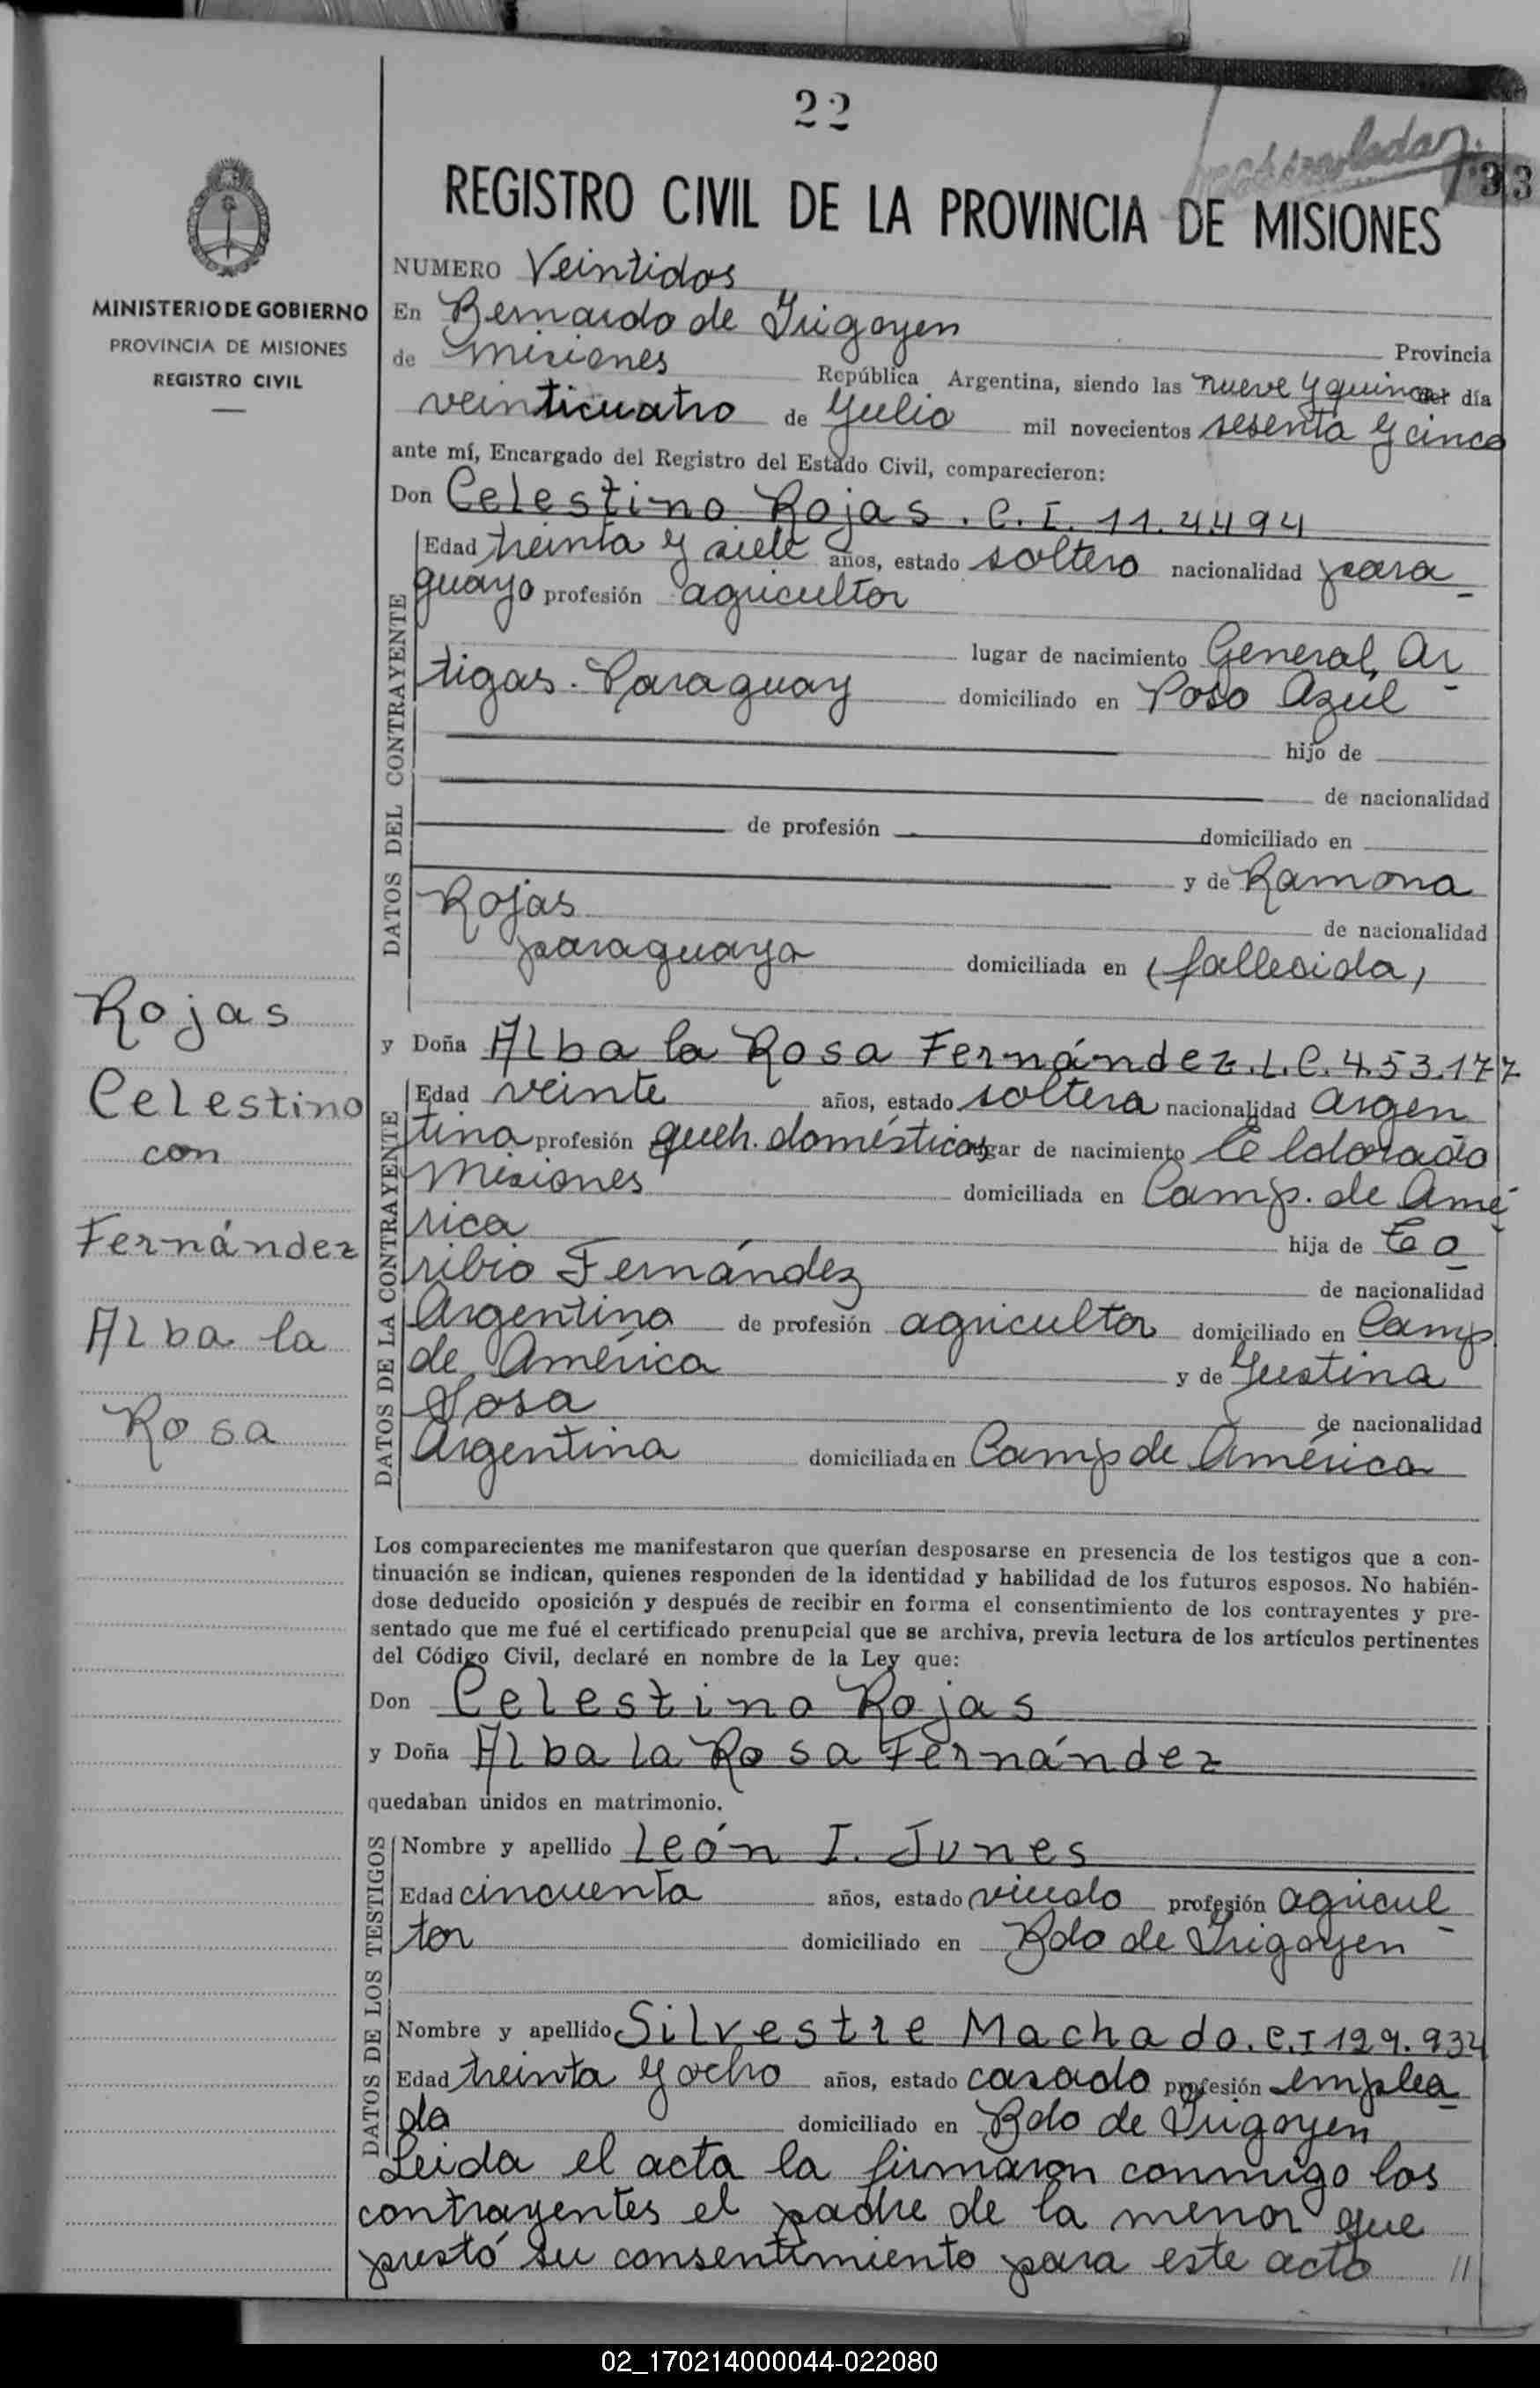 22
33
REGISTRO CIVIL DE LA PROVINCIA DE MISIONES
MINISTERIO DE GOBIERNO
PROVINCIA DE MISIONES
REGISTRO CIVIL
NUMERO Veintidos
En Bernardo de Irigoyen
de Misiones Provincia
República Argentina, siendo las nueve y quince del día
veinticuatro de Julio mil novecientos sesenta y cinco
ante mí, Encargado del Registro del Estado Civil, comparecieron:
Don Celestino Rojas. C. I. 11.4494
DATOS DEL CONTRAYENTE
Edad treinta y siete años, estado soltero nacionalidad para-
guayo profesión agricultor
lugar de nacimiento General Ar-
tigas. Paraguay domiciliado en Poso Azúl
hijo de
de nacionalidad
de profesión domiciliado en
y de Ramona
Rojas de nacionalidad
paraguaya domiciliada en (fallecida)
Rojas
Celestino
con
Fernández
Alba la
Rosa
y Doña Alba la Rosa Fernández. L. C. 4.53.177
DATOS DE LA CONTRAYENTE
Edad veinte años, estado soltera nacionalidad Argen
tina profesión queh. domésticos lugar de nacimiento El Eldorado
Misiones domiciliada en Camp. de Amé-
rica hija de To-
ribio Fernández de nacionalidad
Argentino de profesión agricultor domiciliado en Camp.
de América y de Justina
Sosa de nacionalidad
Argentina domiciliada en Camp de América
Los comparecientes me manifestaron que querían desposarse en presencia de los testigos que a con-
tinuación se indican, quienes responden de la identidad y habilidad de los futuros esposos. No habién-
dose deducido oposición y después de recibir en forma el consentimiento de los contrayentes y pre-
sentado que me fué el certificado prenupcial que se archiva, previa lectura de los artículos pertinentes
del Código Civil, declaré en nombre de la Ley que:
Don Celestino Rojas
y Doña Alba la Rosa Fernández
quedaban unidos en matrimonio.
DATOS DE LOS TESTIGOS
Nombre y apellido León I. Junes
Edad cincuenta años, estado viudo profesión agricul-
tor domiciliado en Bdo de Irigoyen
Nombre y apellido Silvestre Machado. C. I 129.934
Edad treinta y ocho años, estado casado profesión emplea-
do domiciliado en Bdo de Irigoyen
Leida el acta la firmaron conmigo los
contrayentes el padre de la menor que
prestó su consentimiento para este acto //
02_170214000044-022080